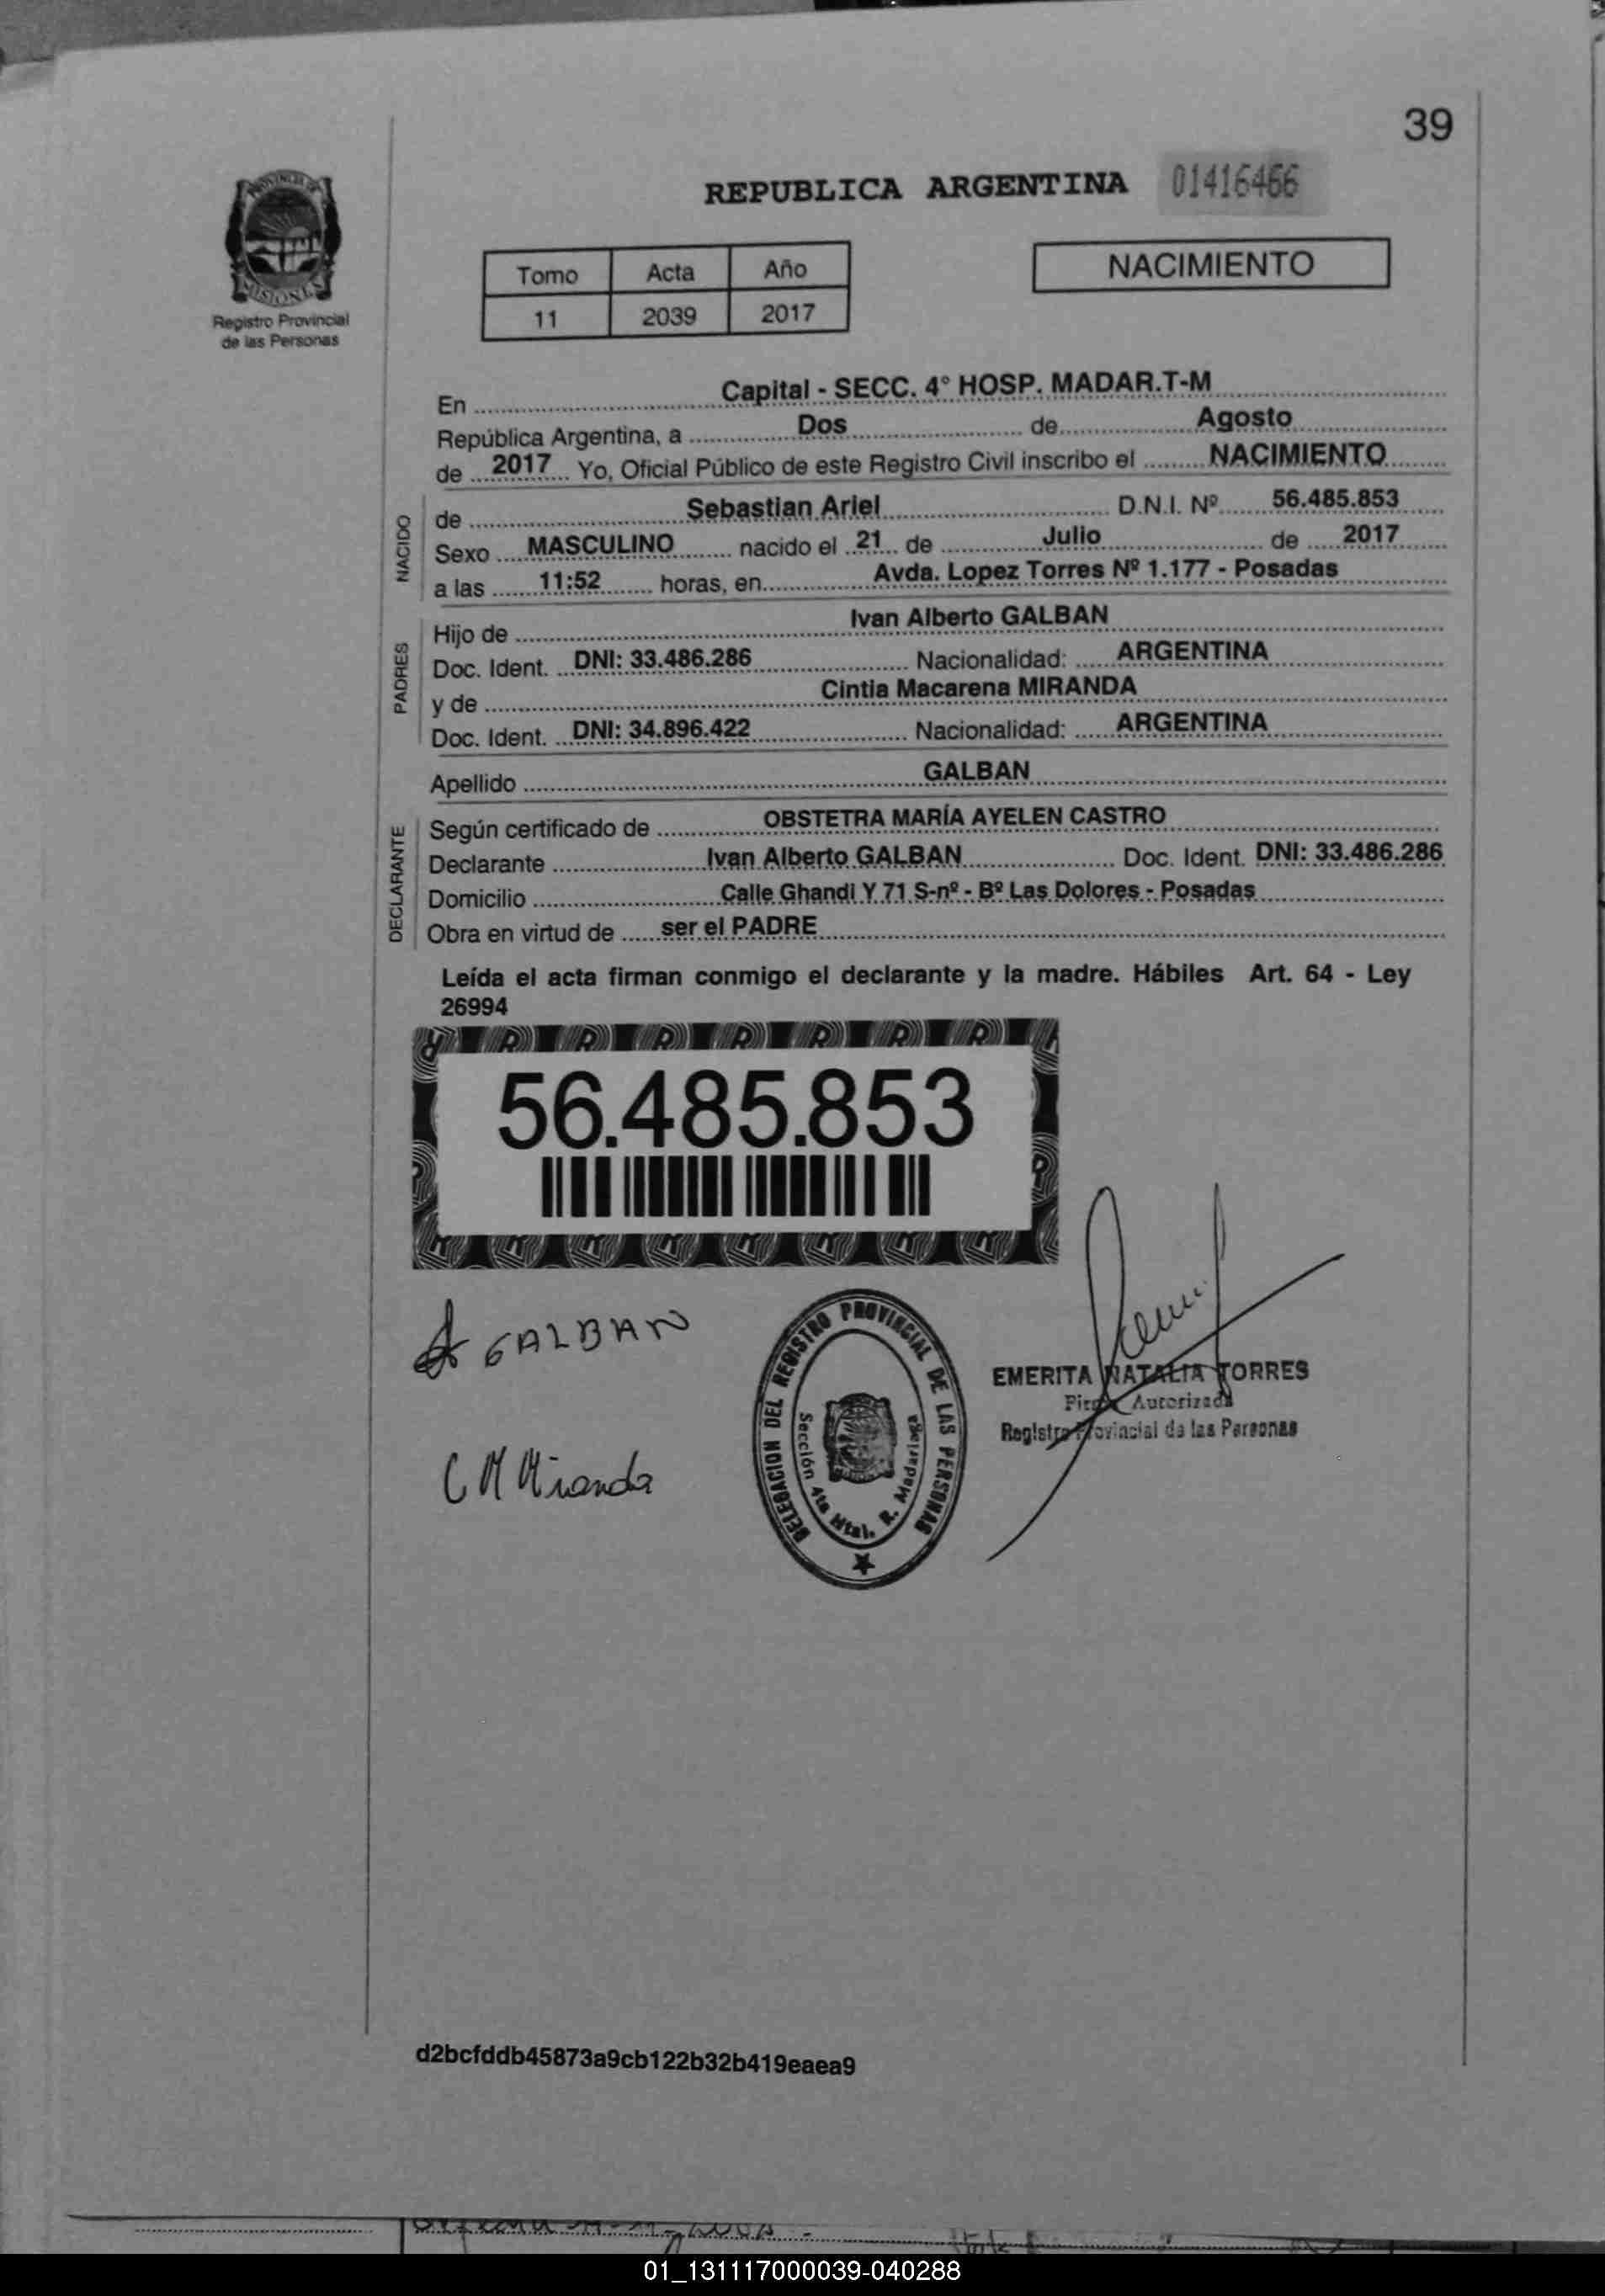 39
REPUBLICA ARGENTINA 01416466
PROVINCIA DE
MISIONES
Registro Provincial
de las Personas
Tomo Acta Año
11 2039 2017
NACIMIENTO
En Capital - SECC. 4° HOSP. MADAR.T-M
República Argentina, a Dos de Agosto
de 2017 Yo, Oficial Público de este Registro Civil inscribo el NACIMIENTO
NACIDO
de Sebastian Ariel D.N.I. Nº 56.485.853
Sexo MASCULINO nacido el 21 de Julio de 2017
a las 11:52 horas, en Avda. Lopez Torres Nº 1.177 - Posadas
PADRES
Hijo de Ivan Alberto GALBAN
Doc. Ident. DNI: 33.486.286 Nacionalidad: ARGENTINA
y de Cintia Macarena MIRANDA
Doc. Ident. DNI: 34.896.422 Nacionalidad: ARGENTINA
Apellido GALBAN
DECLARANTE
Según certificado de OBSTETRA MARÍA AYELEN CASTRO
Declarante Ivan Alberto GALBAN Doc. Ident. DNI: 33.486.286
Domicilio Calle Ghandi Y 71 S-nº - Bº Las Dolores - Posadas
Obra en virtud de ser el PADRE
Leída el acta firman conmigo el declarante y la madre. Hábiles Art. 64 - Ley
26994
56.485.853
GALBAN
C M Miranda
DELEGACION DEL REGISTRO PROVINCIAL DE LAS PERSONAS
Sección 4ta Htal. R. Madariaga
EMERITA NATALIA TORRES
Firma Autorizada
Registro Provincial de las Personas
d2bcfddb45873a9cb122b32b419eaea9
01_131117000039-040288